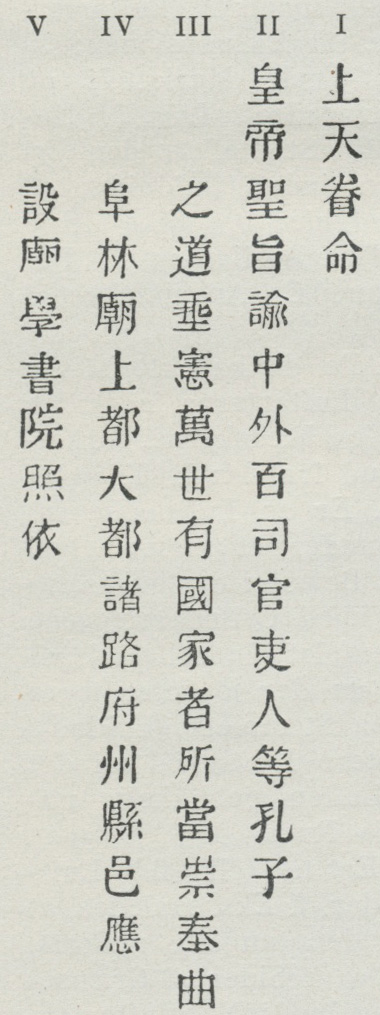 I 上天眷命
II 皇帝聖旨諭中外百司官吏人等孔子
III 之道垂憲萬世有國家者所當崇奉曲
IV 阜林廟上都大都諸路府州縣邑應
V 設廟學書院照依